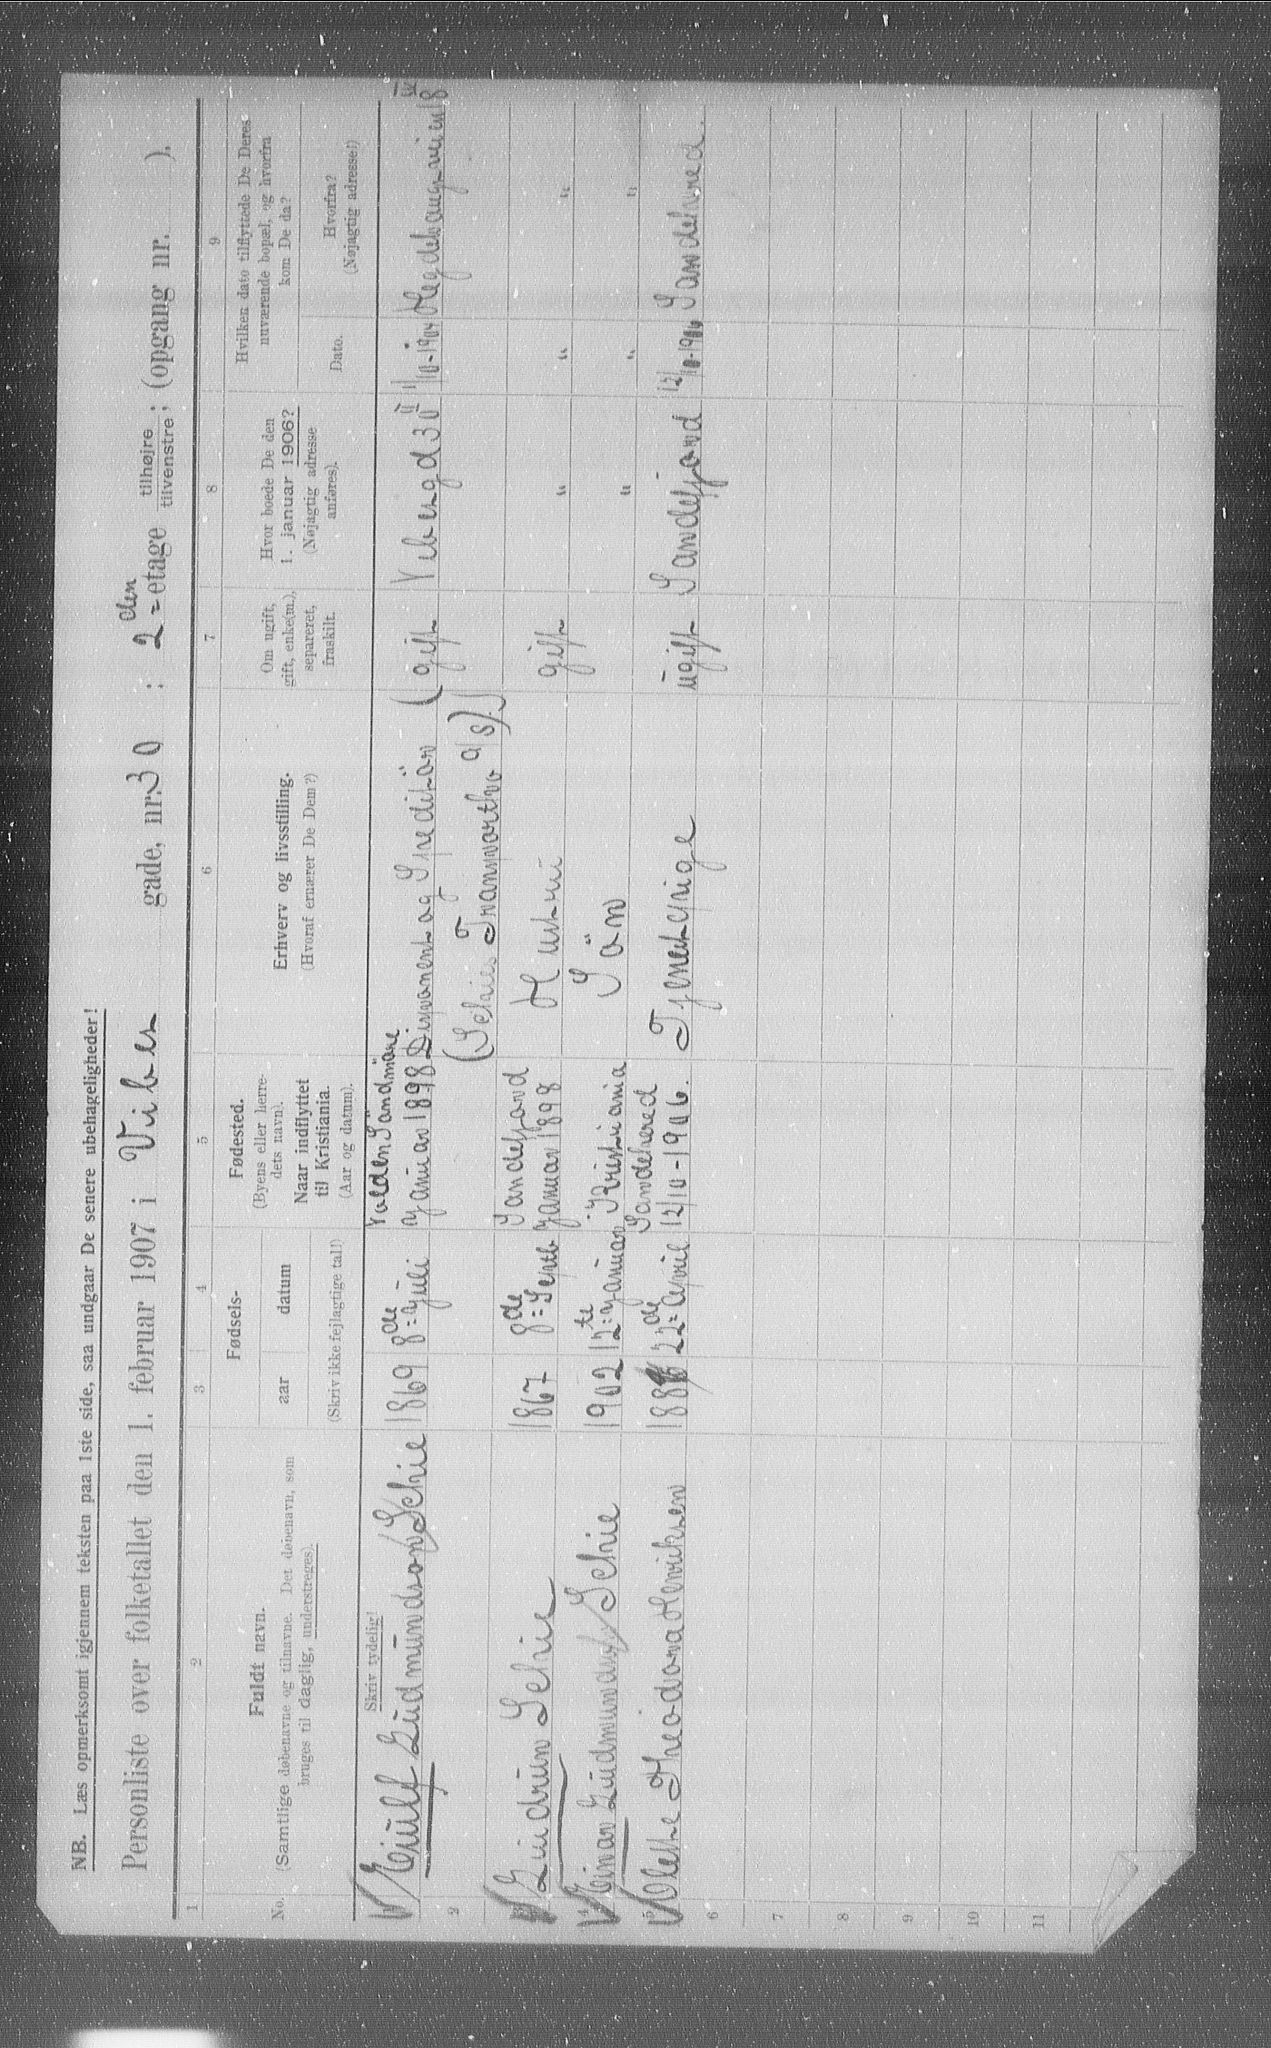 NB. Læs opmerksomt igjennem teksten paa 1ste side, saa undgaar De senere ubehageligheder!
Personliste over folketallet den 1. februar 1907 i Vibes gade, nr. 30 : 2den etage tilhøjre; (opgang nr. ).
tilvenstre,
1 2 3 4 5 6 7 8 9
No.
Fuldt navn.
(Samtlige døbenavne og tilnavne. Det døbenavn, som
bruges til daglig, understreges).
Fødsels-
aar datum
(Skriv ikke fejlagtige tal!)
Fødested.
(Byens eller herre-
dets navn).
Naar indflyttet
til Kristiania.
(Aar og datum).
Erhverv og livsstilling.
(Hvoraf ernærer De Dem?)
Om ugift,
gift, enke(m.),
separeret,
fraskilt.
Hvor boede De den
1. januar 1906?
(Nøjagtig adresse
anføres).
Hvilken dato tilflyttede De Deres
nuværende bopæl, og hvorfra
kom De da?
Dato.
Hvorfra?
(Nøjagtig adresse!)
Skriv tydelig!
1 Eiulf Gudmundson Schie 1869 8de Juli Volden Søndmøre Januar 1898 Disponent og Speditør gift Vibesgd 30 II 1/10-1904 Hegdehaugsveien 18
2 (Schies Transportbo a/s).
3 Gudrun Schie 1867 8de Septb Sandefjord Januar 1898 Hustru gift " " "
4 Einar Gudmunds Schie 1902 12te Januar Kristiania Søn " " "
5 Olette Theodora Henriksen 22de April Sandehered 12/10-1906. Tjenestepige ugift Sandefjord 12/10-1906 Sandehered.
6
7
8
9
10
11